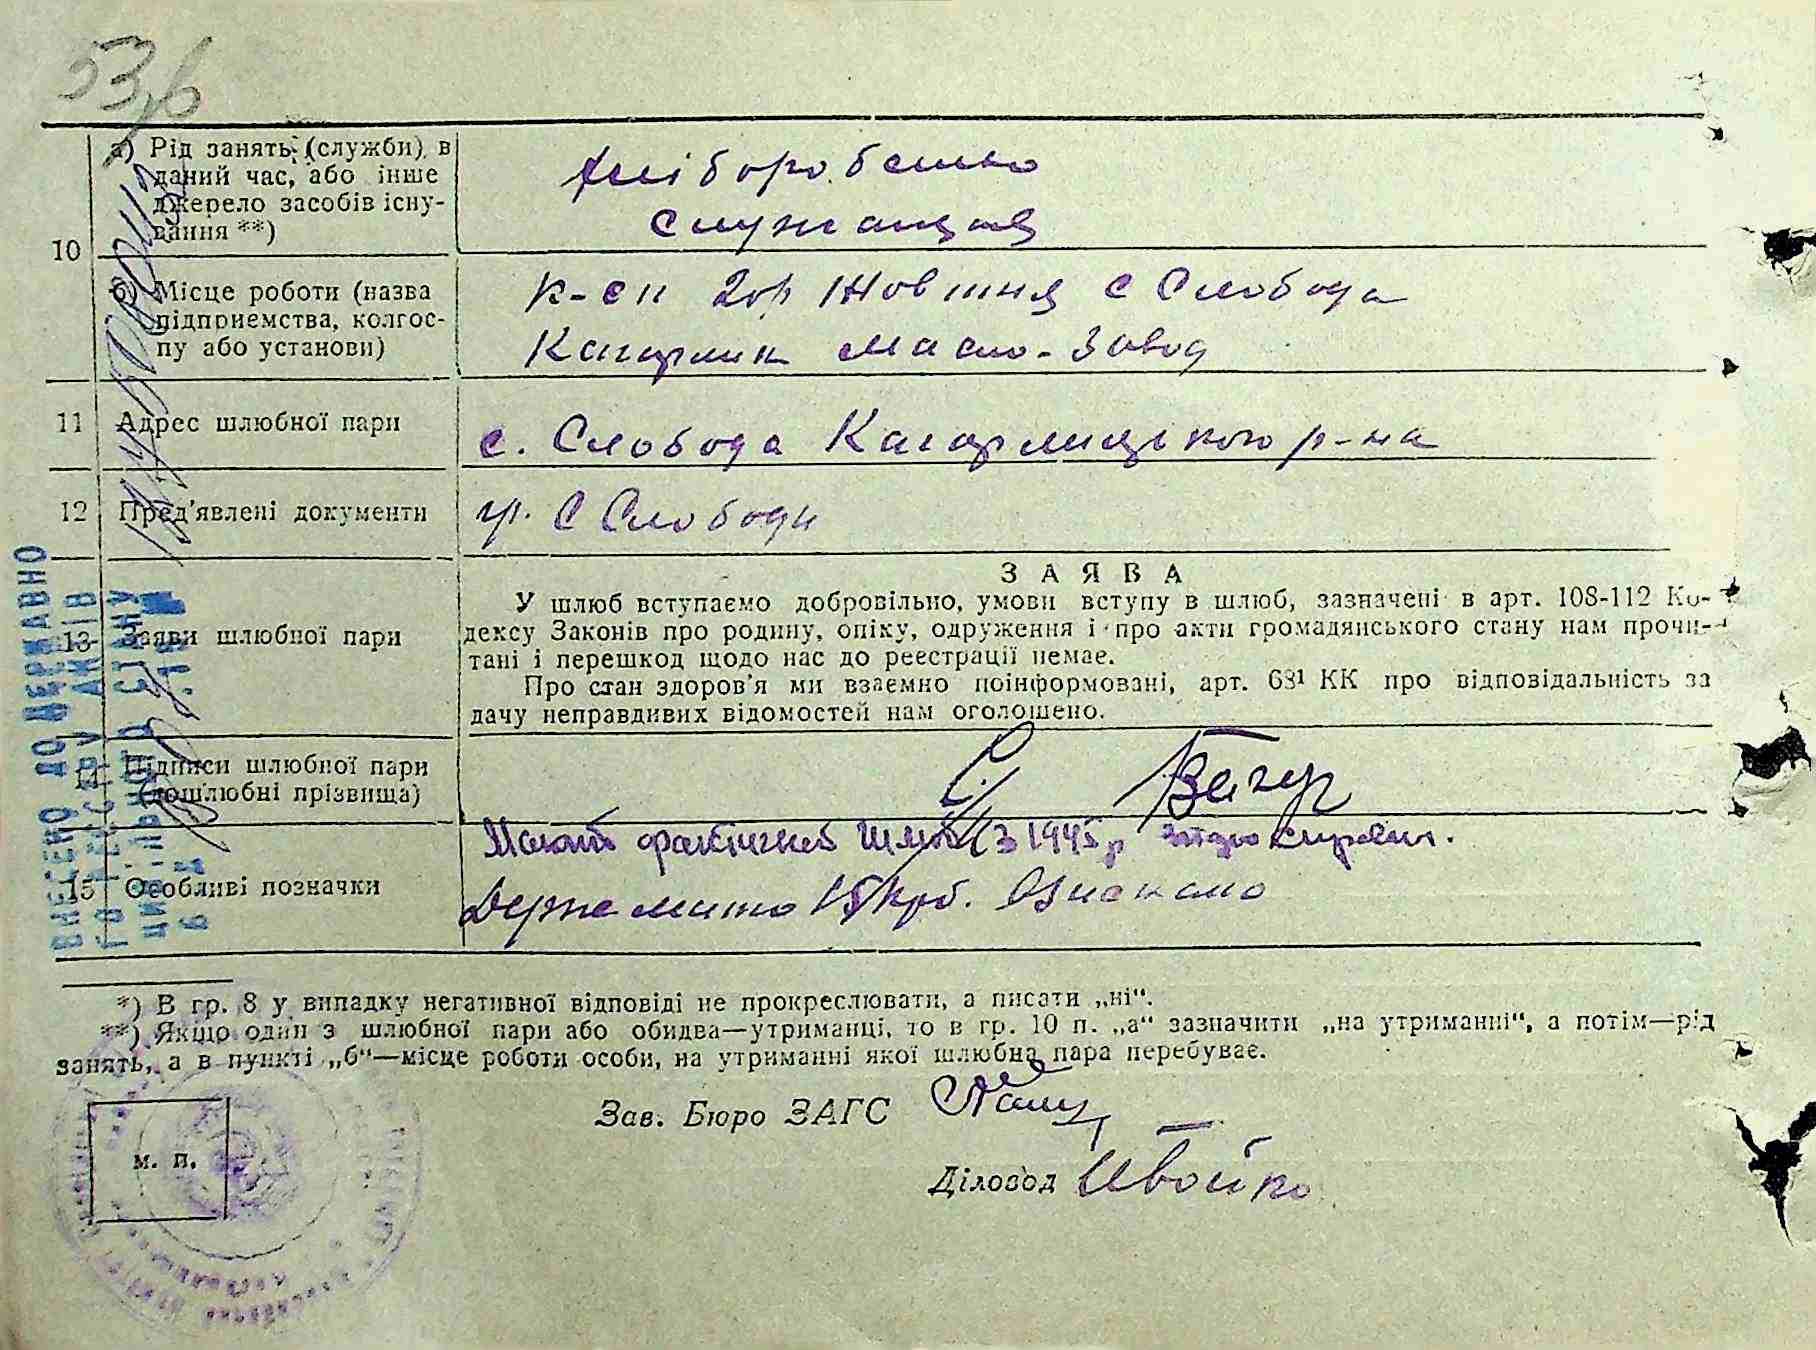 53
а) Рід занять (служби) в
даний час, або інше
джерело засобів існу-
вання **)
Хліборобство
Служащая
10
б) Місце роботи (назва
підприємства, колгос-
пу або установи)
к-сп Жовтня с Слобода
Кагарлик Масло-Завод
11 Адрес шлюбної пари
с. Слобода Кагарлицького р-на
12 Пред'явлені документи
с Слободи
13 Заяви шлюбної пари
ЗАЯВА
У шлюб вступаємо добровільно, умови вступу в шлюб, зазначені в арт. 108-112 Ко-
дексу Законів про родину, опіку, одруження і про акти громадянського стану нам прочи-
тані і перешкод щодо нас до реєстрації немає.
Про стан здоров'я ми взаємно поінформовані, арт. 68¹ КК про відповідальність за
дачу неправдивих відомостей нам оголошено.
14 Підписи шлюбної пари
(дошлюбні прізвища)
15 Особливі позначки
Мають фактичний шлюб з 1945 р
Держмито 15 крб. Взискано
ВНЕСЕНО ДО ДЕРЖАВНО
ГО РЕЄСТРУ АКТІВ
ЦИВІЛЬНОГО СТАНУ
*) В гр. 8 у випадку негативної відповіді не прокреслювати, а писати „ні“.
**) Якщо один з шлюбної пари або обидва—утриманці, то в гр. 10 п. „а“ зазначити „на утриманні“, а потім—рід
занять, а в пункті „б“—місце роботи особи, на утриманні якої шлюбна пара перебуває.
Зав. Бюро ЗАГС
м. п.
Діловод